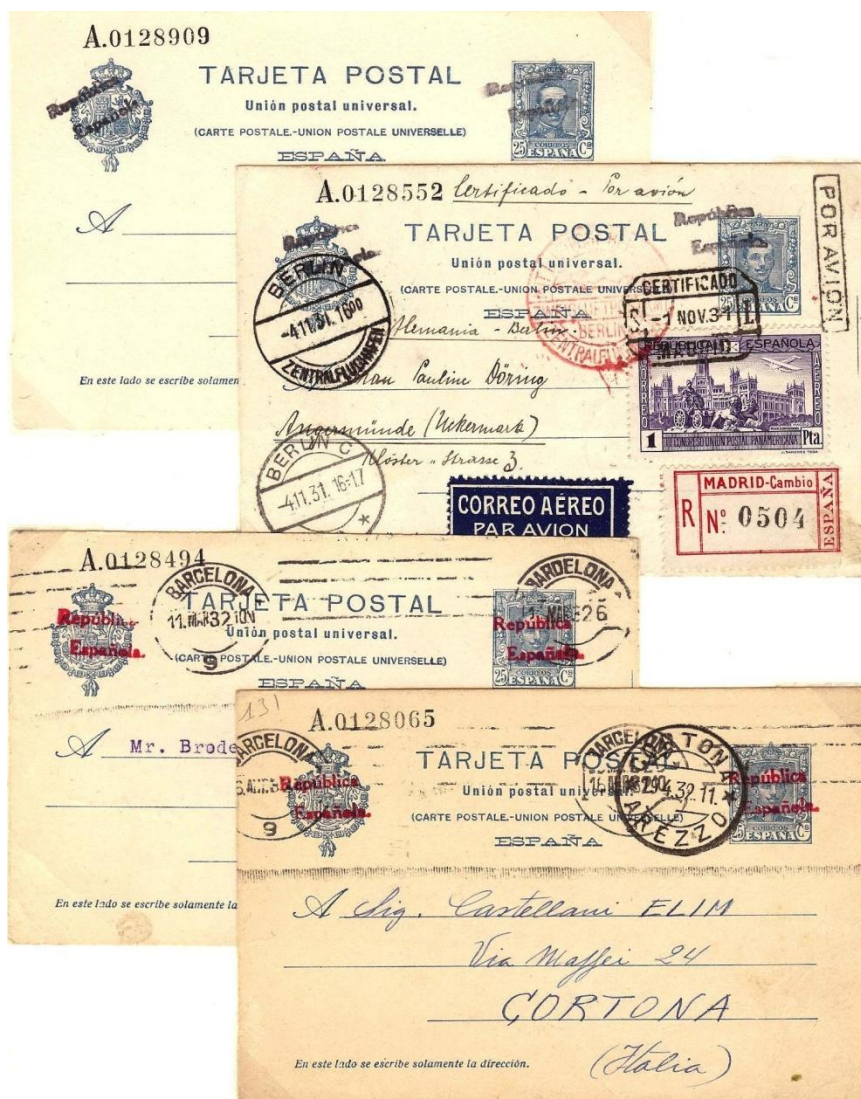 A.0128909
República
Española.
TARJETA POSTAL
Unión postal universal.
(CARTE POSTALE.-UNION POSTALE UNIVERSELLE)
ESPAÑA
República
Española.
CORREOS
25 ESPAÑA Cs
A
En este lado se escribe solamen
A.0128552 Certificado - Por avión
República
TARJETA POSTAL
Unión postal universal.
(CARTE POSTALE.-UNION POSTALE UNIVERSELLE)
ESPAÑA
República
Española.
25 Cs
POR AVIÓN
BERLIN
-4.11.31.16 00
ZENTRALFLUGHAFEN
BERLIN
ZENTRALFLU
CERTIFICADO
-1 NOV.31
MADRID
Alemania - Berlin.
Frau Pauline Döring
Angermünde (Uckermark)
Klöster-Strasse 3.
BERLIN C
-4.11.31. 16-17
REPUBLICA ESPAÑOLA
CORREO AEREO
III CONGRESO UNION POSTAL PANAMERICANA
1 Pta.
CORREO AÉREO
PAR AVION
MADRID-Cambio
R Nº 0504
ESPAÑA
A.0128494
República
Española.
BARCELONA
11.MAR32
9
TARJETA POSTAL
Unión postal universal.
(CARTE POSTALE.-UNION POSTALE UNIVERSELLE)
ESPAÑA
BARCELONA
República
Española.
25 ESPAÑA Cs
A Mr. Brode
En este lado se escribe solamente la
131
A.0128065
BARCELONA
9
República
Española.
TARJETA POSTAL
Unión postal universal.
(CARTE POSTALE.-UNION POSTALE UNIVERSELLE)
ESPAÑA
BARCELONA
CORTONA
AREZZO
República
Española.
CORREOS
25 ESPAÑA Cs
A Sig. Castellani ELIM
Via Maffei 24
CORTONA
(Italia)
En este lado se escribe solamente la dirección.